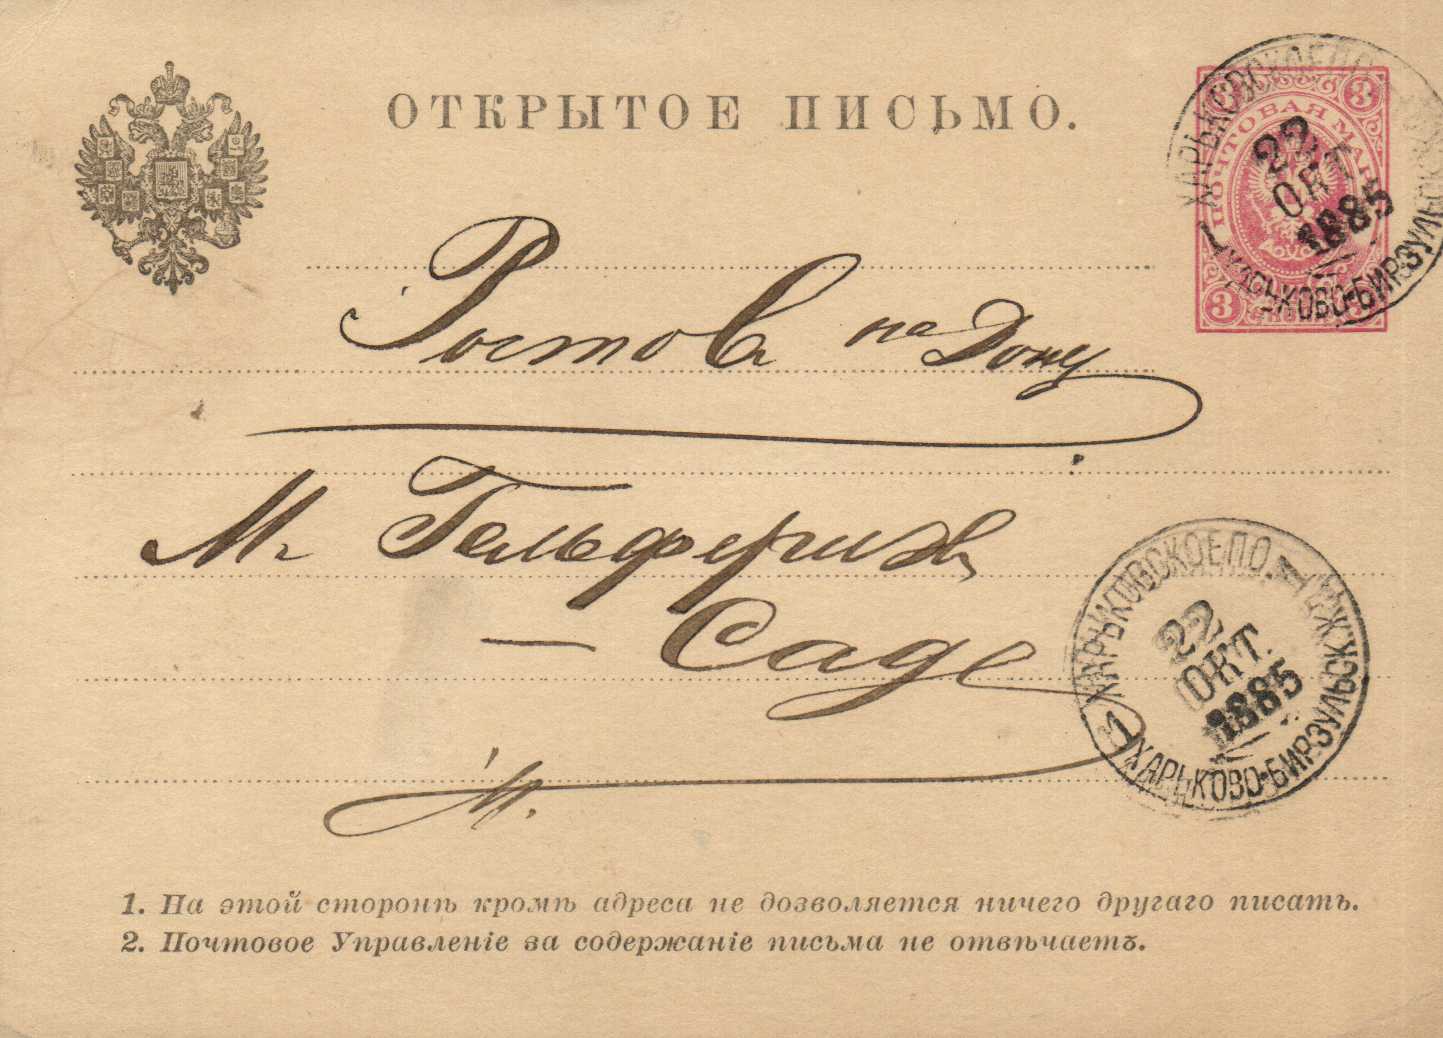 ОТКРЫТОЕ ПИСЬМО.
3 3
ПОЧТОВАЯ МАРКА
3
ХАРЬКОВСКОЕ ПО.
22
ОКТ
1885
ХАРЬКОВО-БИРЗУЛЬСК
Ростовъ на Дону
М. Гельферихъ
— Саде
М.
ХАРЬКОВСКОЕ П.О.
22
ОКТ.
1885
ХАРЬКОВО-БИРЗУЛЬСК
1. На этой сторонѣ кромѣ адреса не дозволяется ничего другаго писать.
2. Почтовое Управленіе за содержаніе письма не отвѣчаетъ.